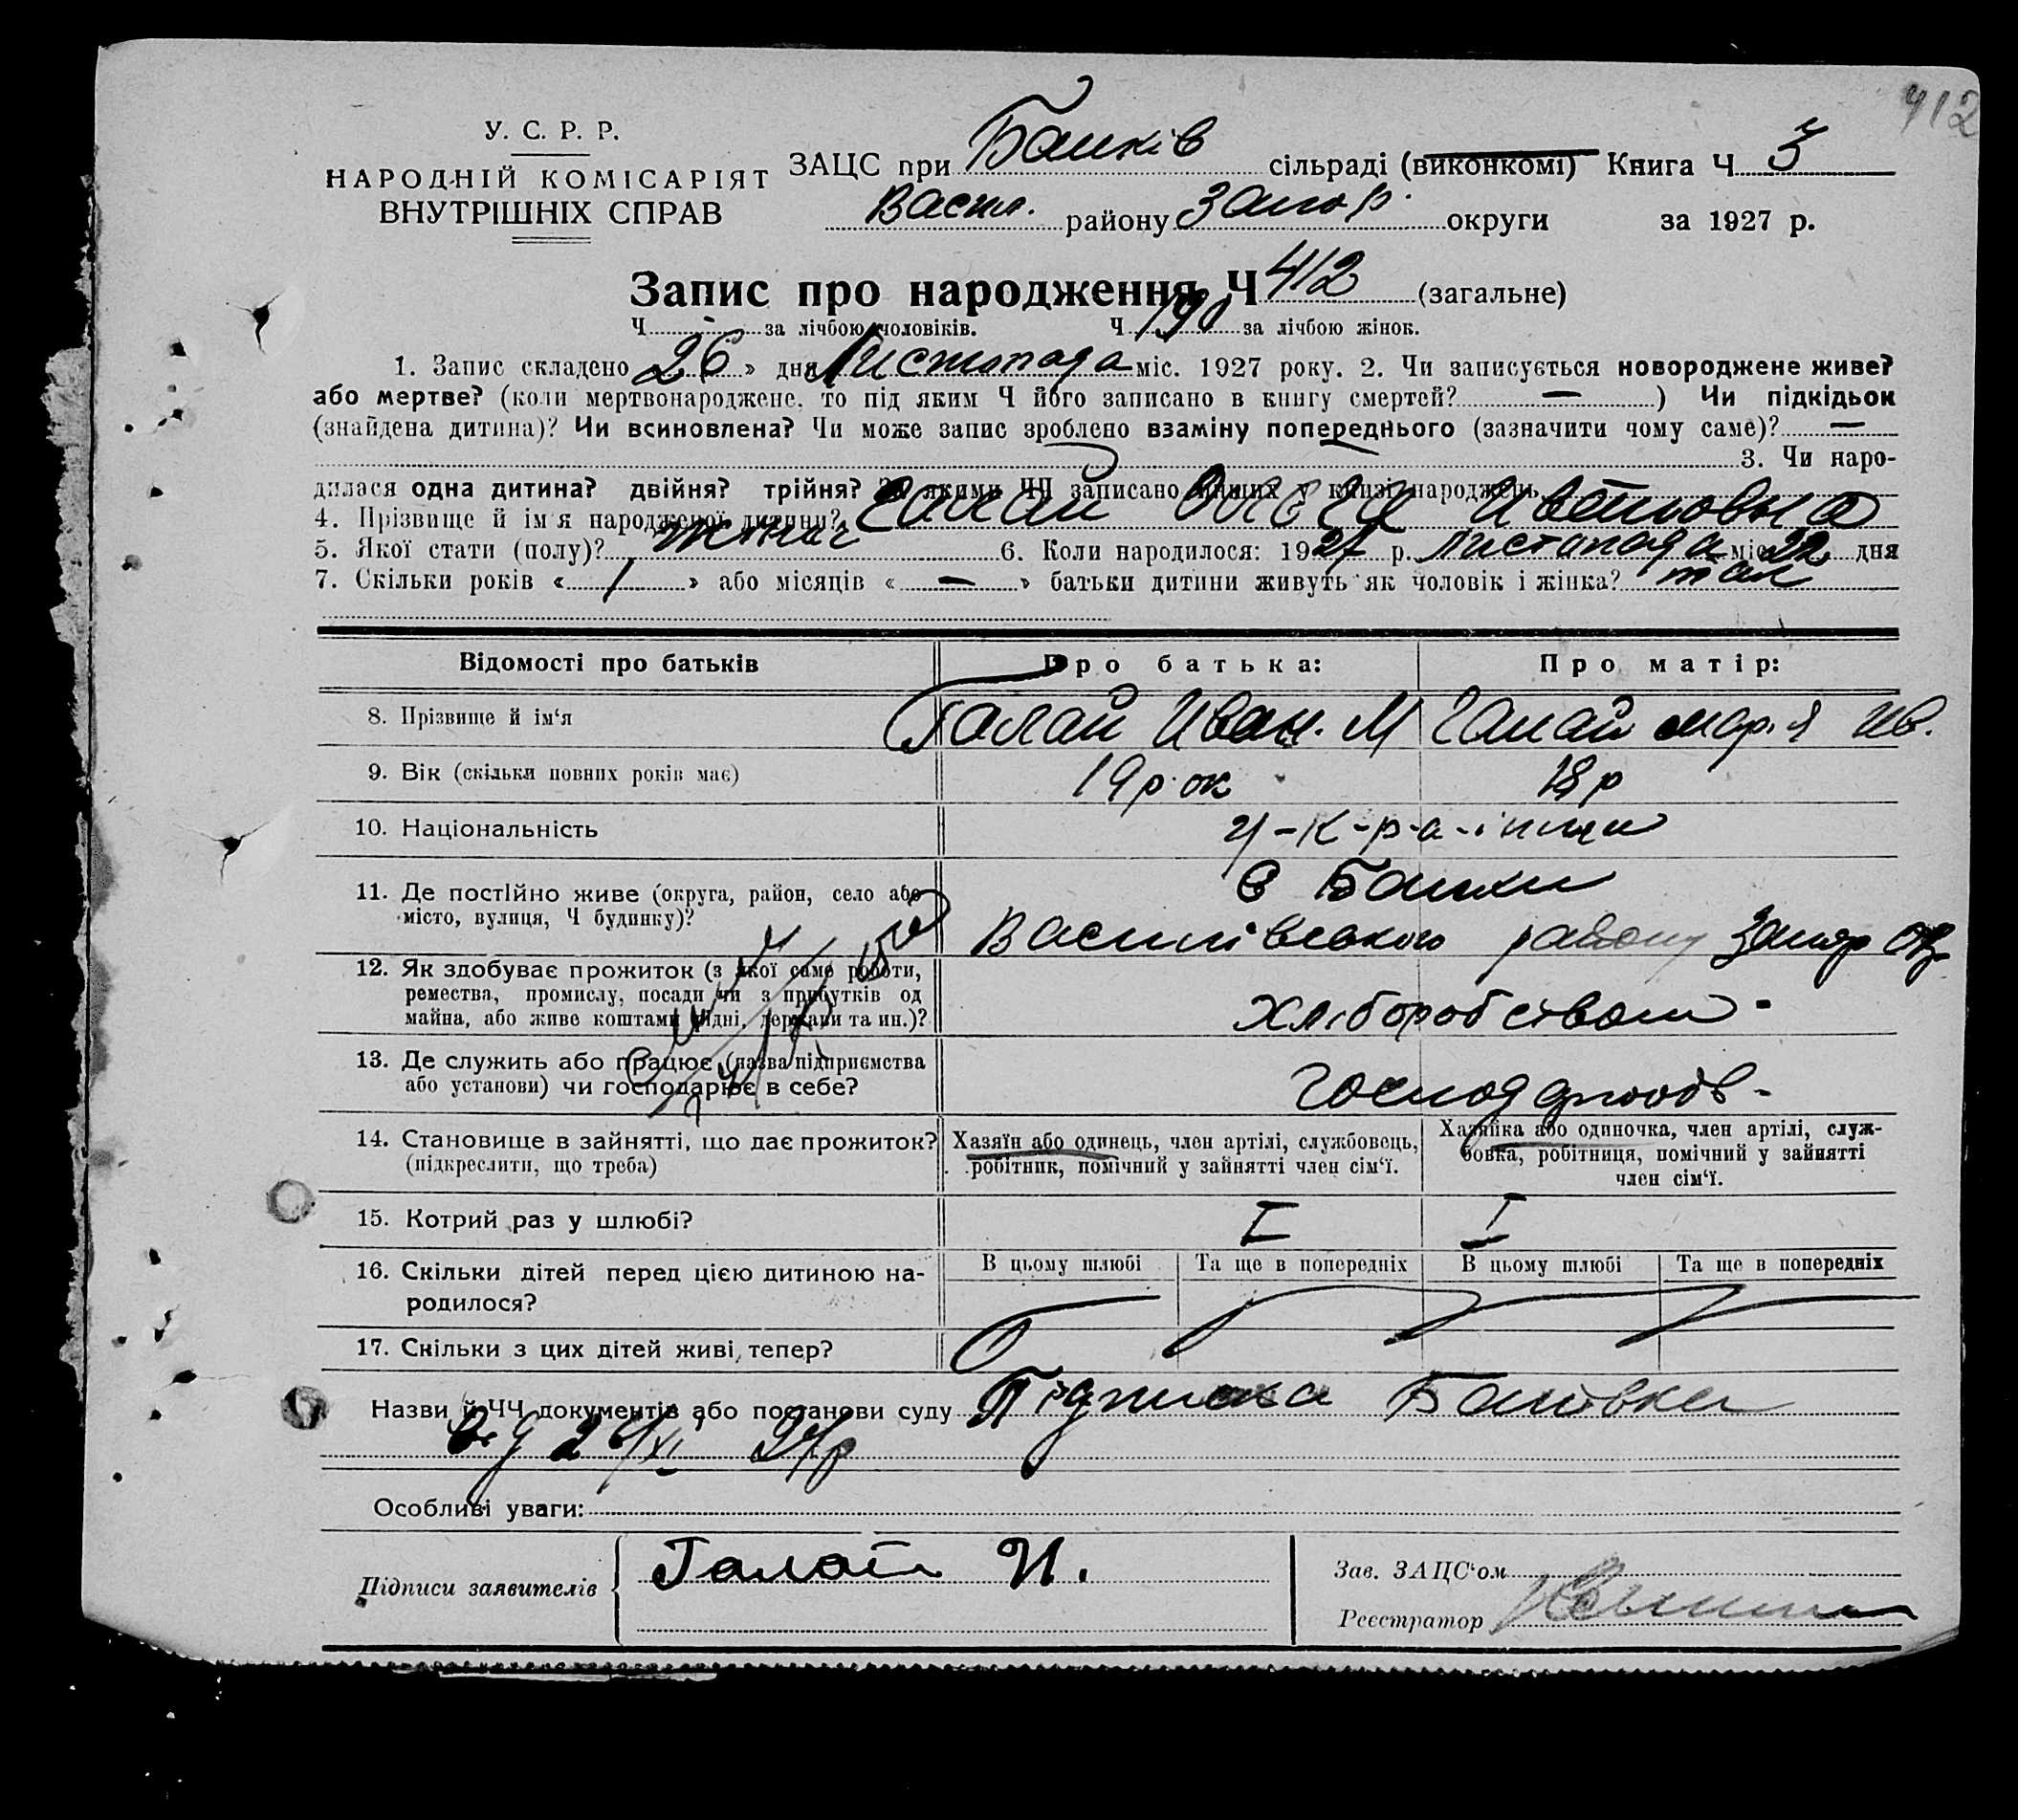 412
У. С. Р. Р.
НАРОДНІЙ КОМІСАРІЯТ
ВНУТРІШНІХ СПРАВ
ЗАЦС при Балків сільраді (виконкомі) Книга Ч 3
Васил. району Запор. округи за 1927 р.
Запис про народження Ч 412 (загальне)
Ч - за лічбою чоловіків. Ч 190 за лічбою жінок.
1. Запис складено 26 » дня Листопада міс. 1927 року. 2. Чи записується новороджене живе?
або мертве? (коли мертвонароджене, то під яким Ч його записано в книгу смертей? — ) Чи підкідьок
(знайдена дитина)? Чи всиновлена? Чи може запис зроблено взаміну попереднього (зазначити чому саме)? —
3. Чи наро-
дилася одна дитина? двійня? трійня? За якими ЧЧ записано инших у книзі народжень
4. Прізвище й ім'я народженої дитини? Галай Ивановна
5. Якої стати (полу)? жінач 6. Коли народилося: 1927 р. листопада міс. 22 дня
7. Скільки років « 1 » або місяців « — » батьки дитини живуть як чоловік і жінка? так
Відомості про батьків Про батька: Про матір:
8. Прізвище й ім'я Галай Иван. М Галай Марія Ив.
9. Вік (скільки повних років має) 19 рок 18 р
10. Національність у-к-р-а-інци
11. Де постійно живе (округа, район, село або с Балки
місто, вулиця, Ч будинку)? Василівського району Запор окр
12. Як здобуває прожиток (з якої саме роботи,
ремества, промислу, посади чи з прибутків од
майна, або живе коштами рідні, держави та ин.)? Хліборобством
13. Де служить або працює (назва підприємства
або установи) чи господарює в себе?
14. Становище в зайнятті, що дає прожиток? Хазяїн або одинець, член артілі, службовець, Хазяйка або одиночка, член артілі, служ-
(підкреслити, що треба) робітник, помічний у зайнятті член сім'ї. бовка, робітниця, помічний у зайнятті
член сім'ї.
15. Котрий раз у шлюбі? I I
16. Скільки дітей перед цією дитиною на- В цьому шлюбі Та ще в попередніх В цьому шлюбі Та ще в попередніх
родилося?
17. Скільки з цих дітей живі тепер?
Назви й ЧЧ документів або постанови суду Підписка Батька
від 26/XI 27 р
Особливі уваги:
Підписи заявителів Галай И.
Зав. ЗАЦС'ом
Реєстратор